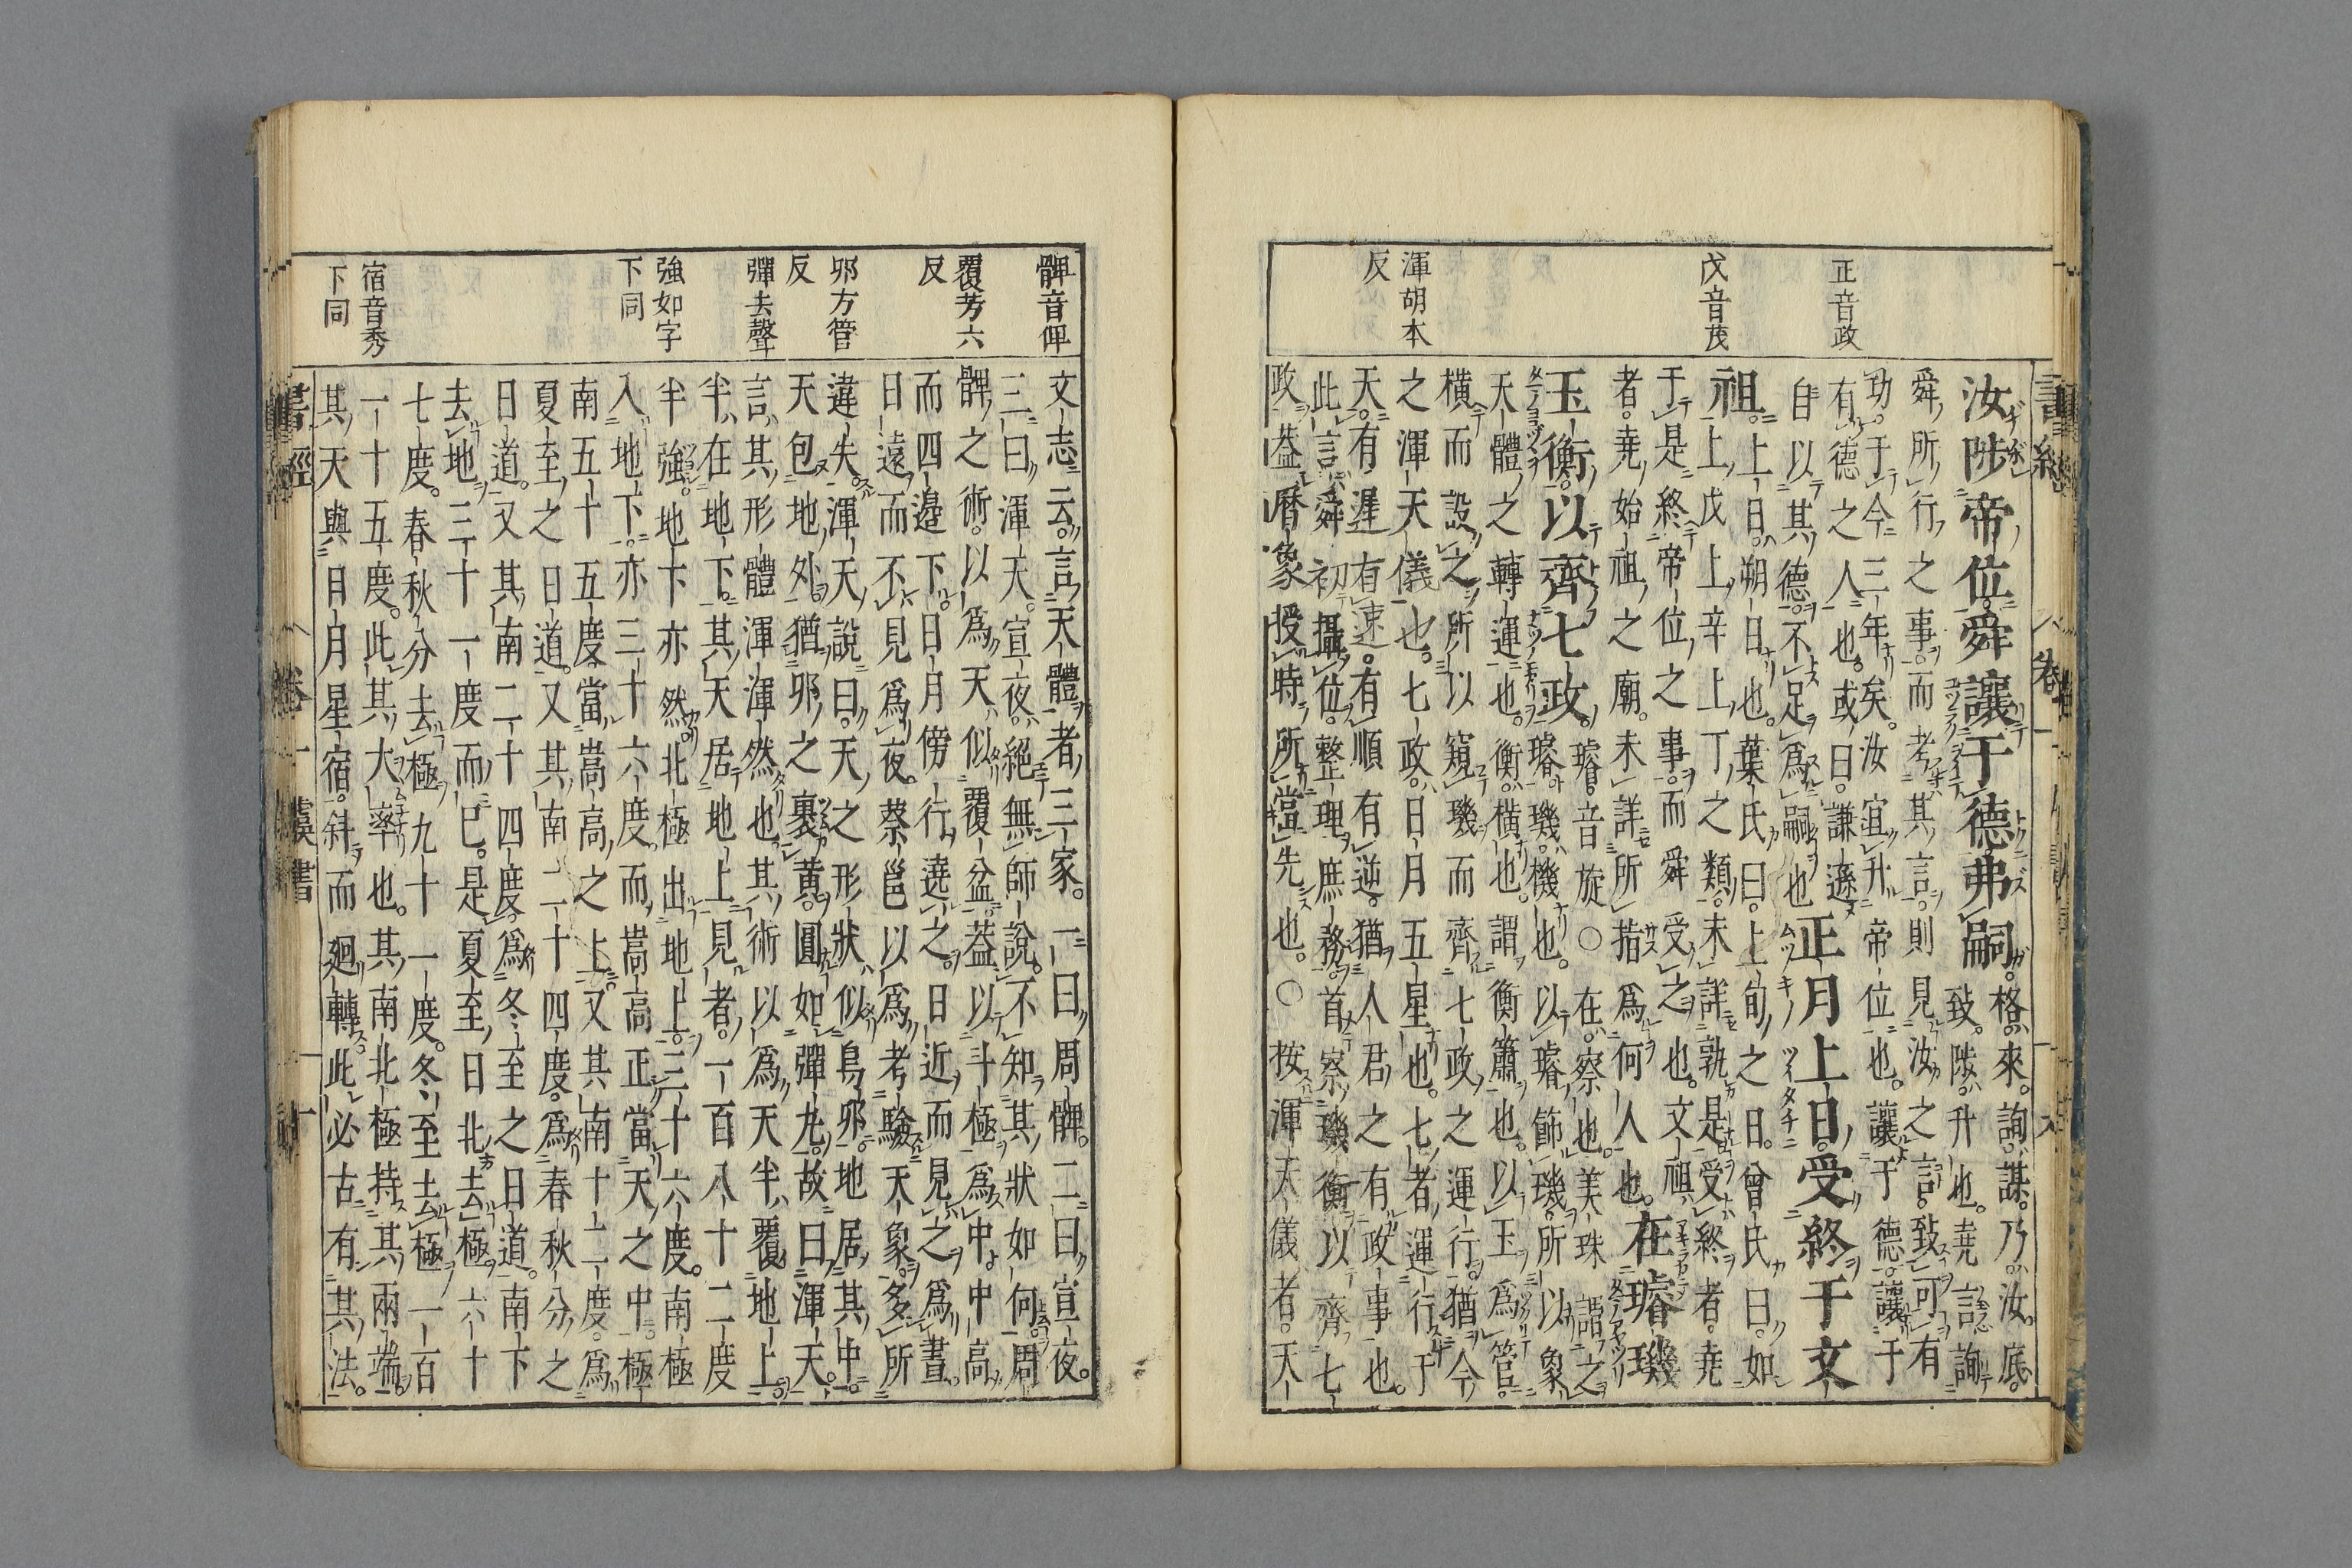 正音政
戊音茂
渾胡本
反
汝陟帝位舜讓于德弗嗣格來詢謀乃汝底
致陟升也堯言詢
舜所行之事而考其言則見汝之言致可有
功于今三年矣汝宜升帝位也讓于德讓于
有德之人也或曰謙遜
自以其德不足爲嗣也正月上日受終于文
祖上日朔日也葉氏曰上旬之日曾氏曰如
上戊上辛上丁之類未詳孰是受終者堯
于是終帝位之事而舜受之也文祖
者堯始祖之廟未詳所指爲何人也在璿璣
玉衡以齊七政璿音旋○在察也美珠謂之
璿璣機也以璿飾璣所以象
天體之轉運也衡橫也謂衡簫也以玉爲管
橫而設之所以窺璣而齊七政之運行猶今
之渾天儀也七政日月五星也七者運行于
天有遲有速有順有逆猶人君之有政事也
此言舜初攝位整理庶務首察璣衡以齊七
政蓋曆象授時所當先也○按渾天儀者天
髀音俾
覆芳六
反
卵方管
反
彈去聲
強如字
下同
宿音秀
下同
文志云言天體者三家一曰周髀二曰宣夜
三曰渾天宣夜絕無師說不知其狀如何周
髀之術以爲天似覆盆蓋以斗極爲中中高
而四邊下日月傍行遶之日近而見之爲晝
日遠而不見爲夜蔡邕以爲考驗天象多所
違失渾天說曰天之形狀似鳥卵地居其中
天包地外猶卵之裹黃圓如彈丸故曰渾天
言其形體渾渾然也其術以爲天半覆地上
半在地下其天居地上見者一百八十二度
半強地下亦然北極出地上三十六度南極
入地下亦三十六度而嵩高正當天之中極
南五十五度當嵩高之上又其南十二度爲
夏至之日道又其南二十四度爲春秋分之
日道又其南二十四度爲冬至之日道南下
去地三十一度而已是夏至日北去極六十
七度春秋分去極九十一度冬至去極一百
一十五度此其大率也其南北極持其兩端
其天與日月星宿斜而迴轉此必古有其法
書經 卷一 虞書